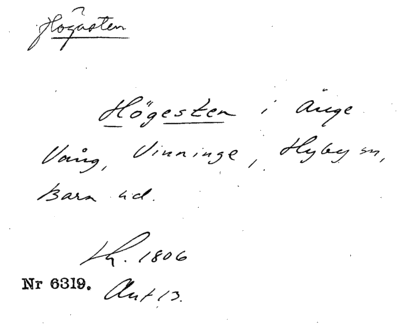 Högasten
Högesten i Änge
Vång, Vinninge, Hyby sn,
Bara hd.
Lh. 1806
Nr 6319.
Akt 13.